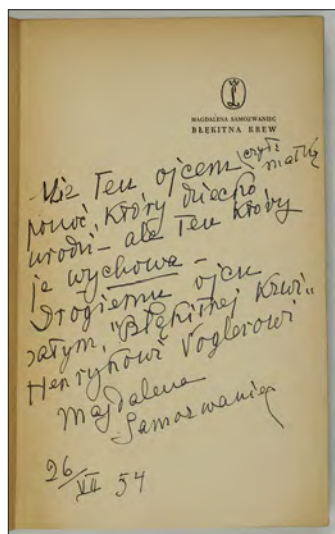 MAGDALENA SAMOZWANIEC
BŁĘKITNA KREW
- Nie ten ojcem (czyli matką
ponoć, który dziecko
urodzi - ale ten który
je wychowa -
Drogiemu ojcu
"Błękitnej Krwi"
Henrykowi Voglerowi
Magdalena
Samozwaniec
26/VII 54